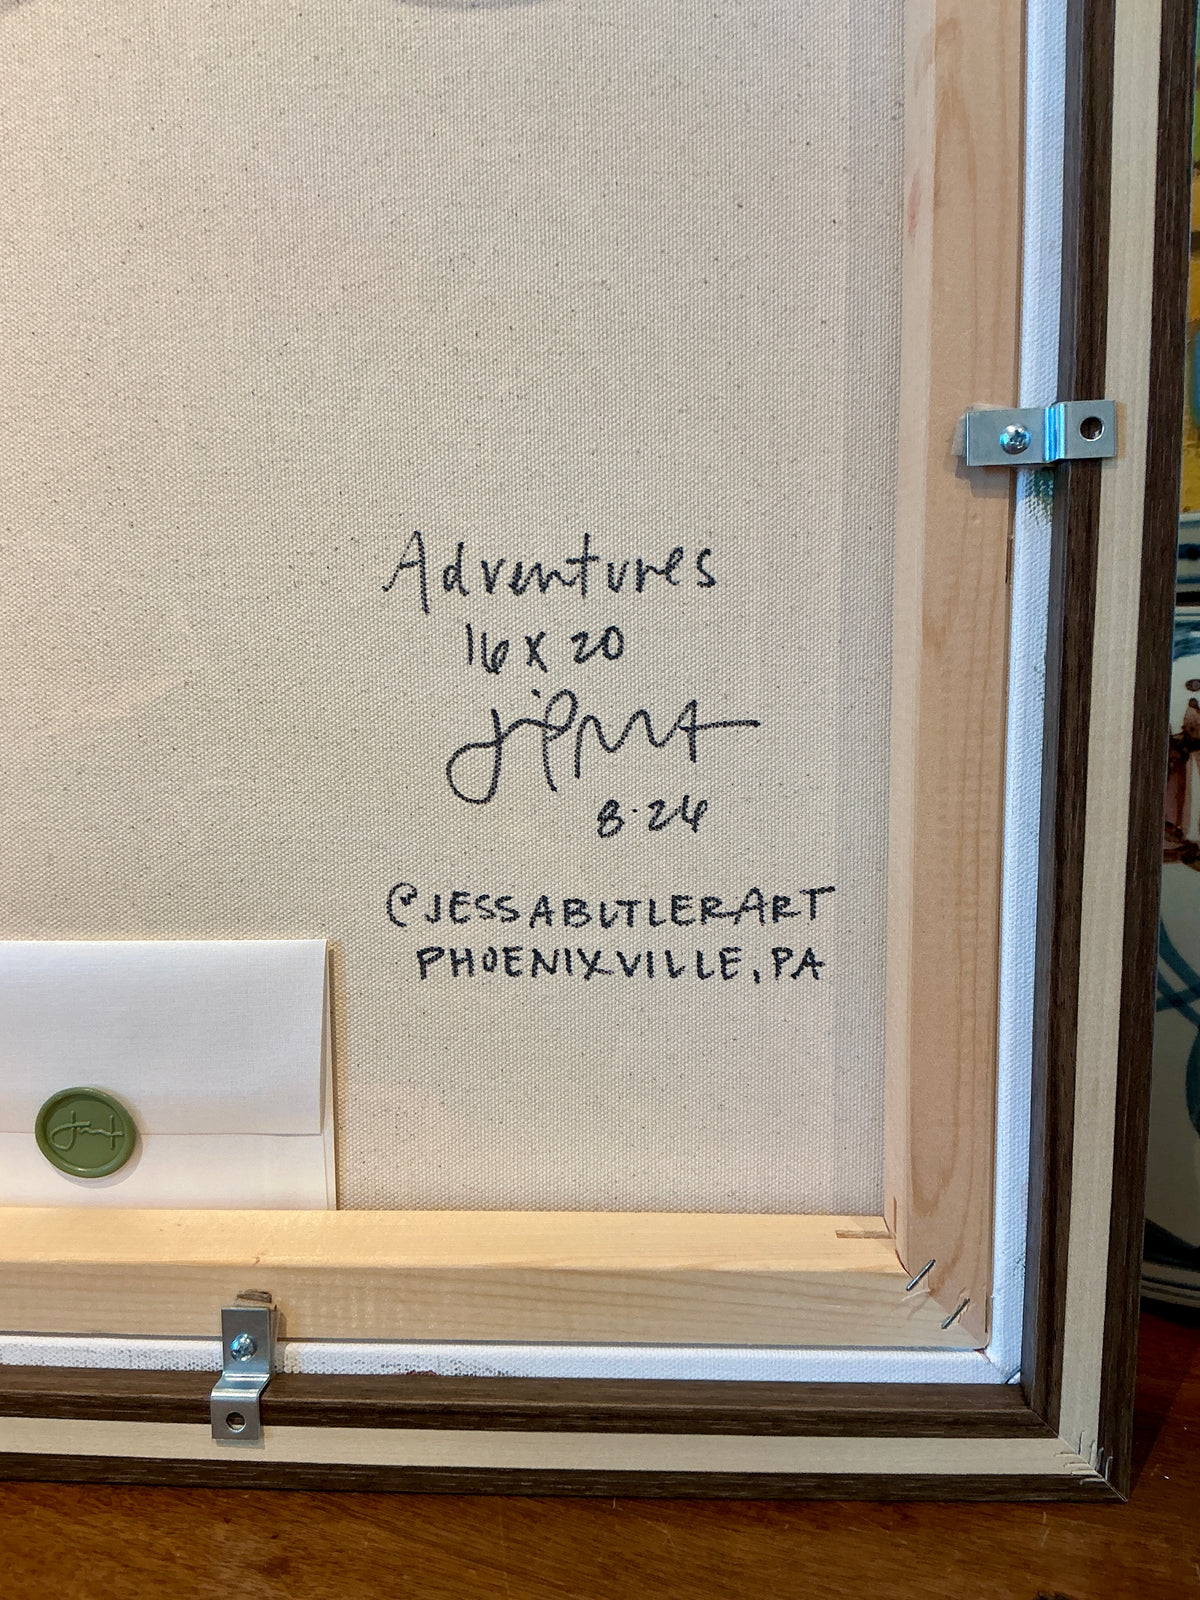 Adventures
16 x 20
8.24
@JESSABUTLERART
PHOENIXVILLE, PA